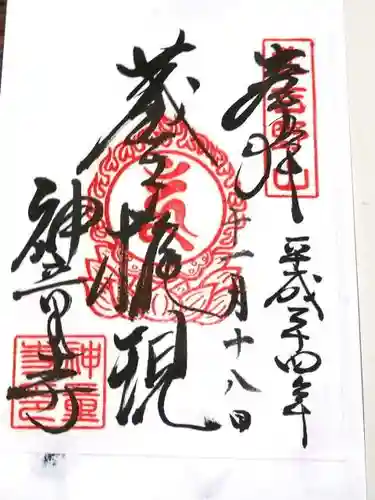 奉拝
平成二十四年
十一月十八日
蔵王権現
神童寺